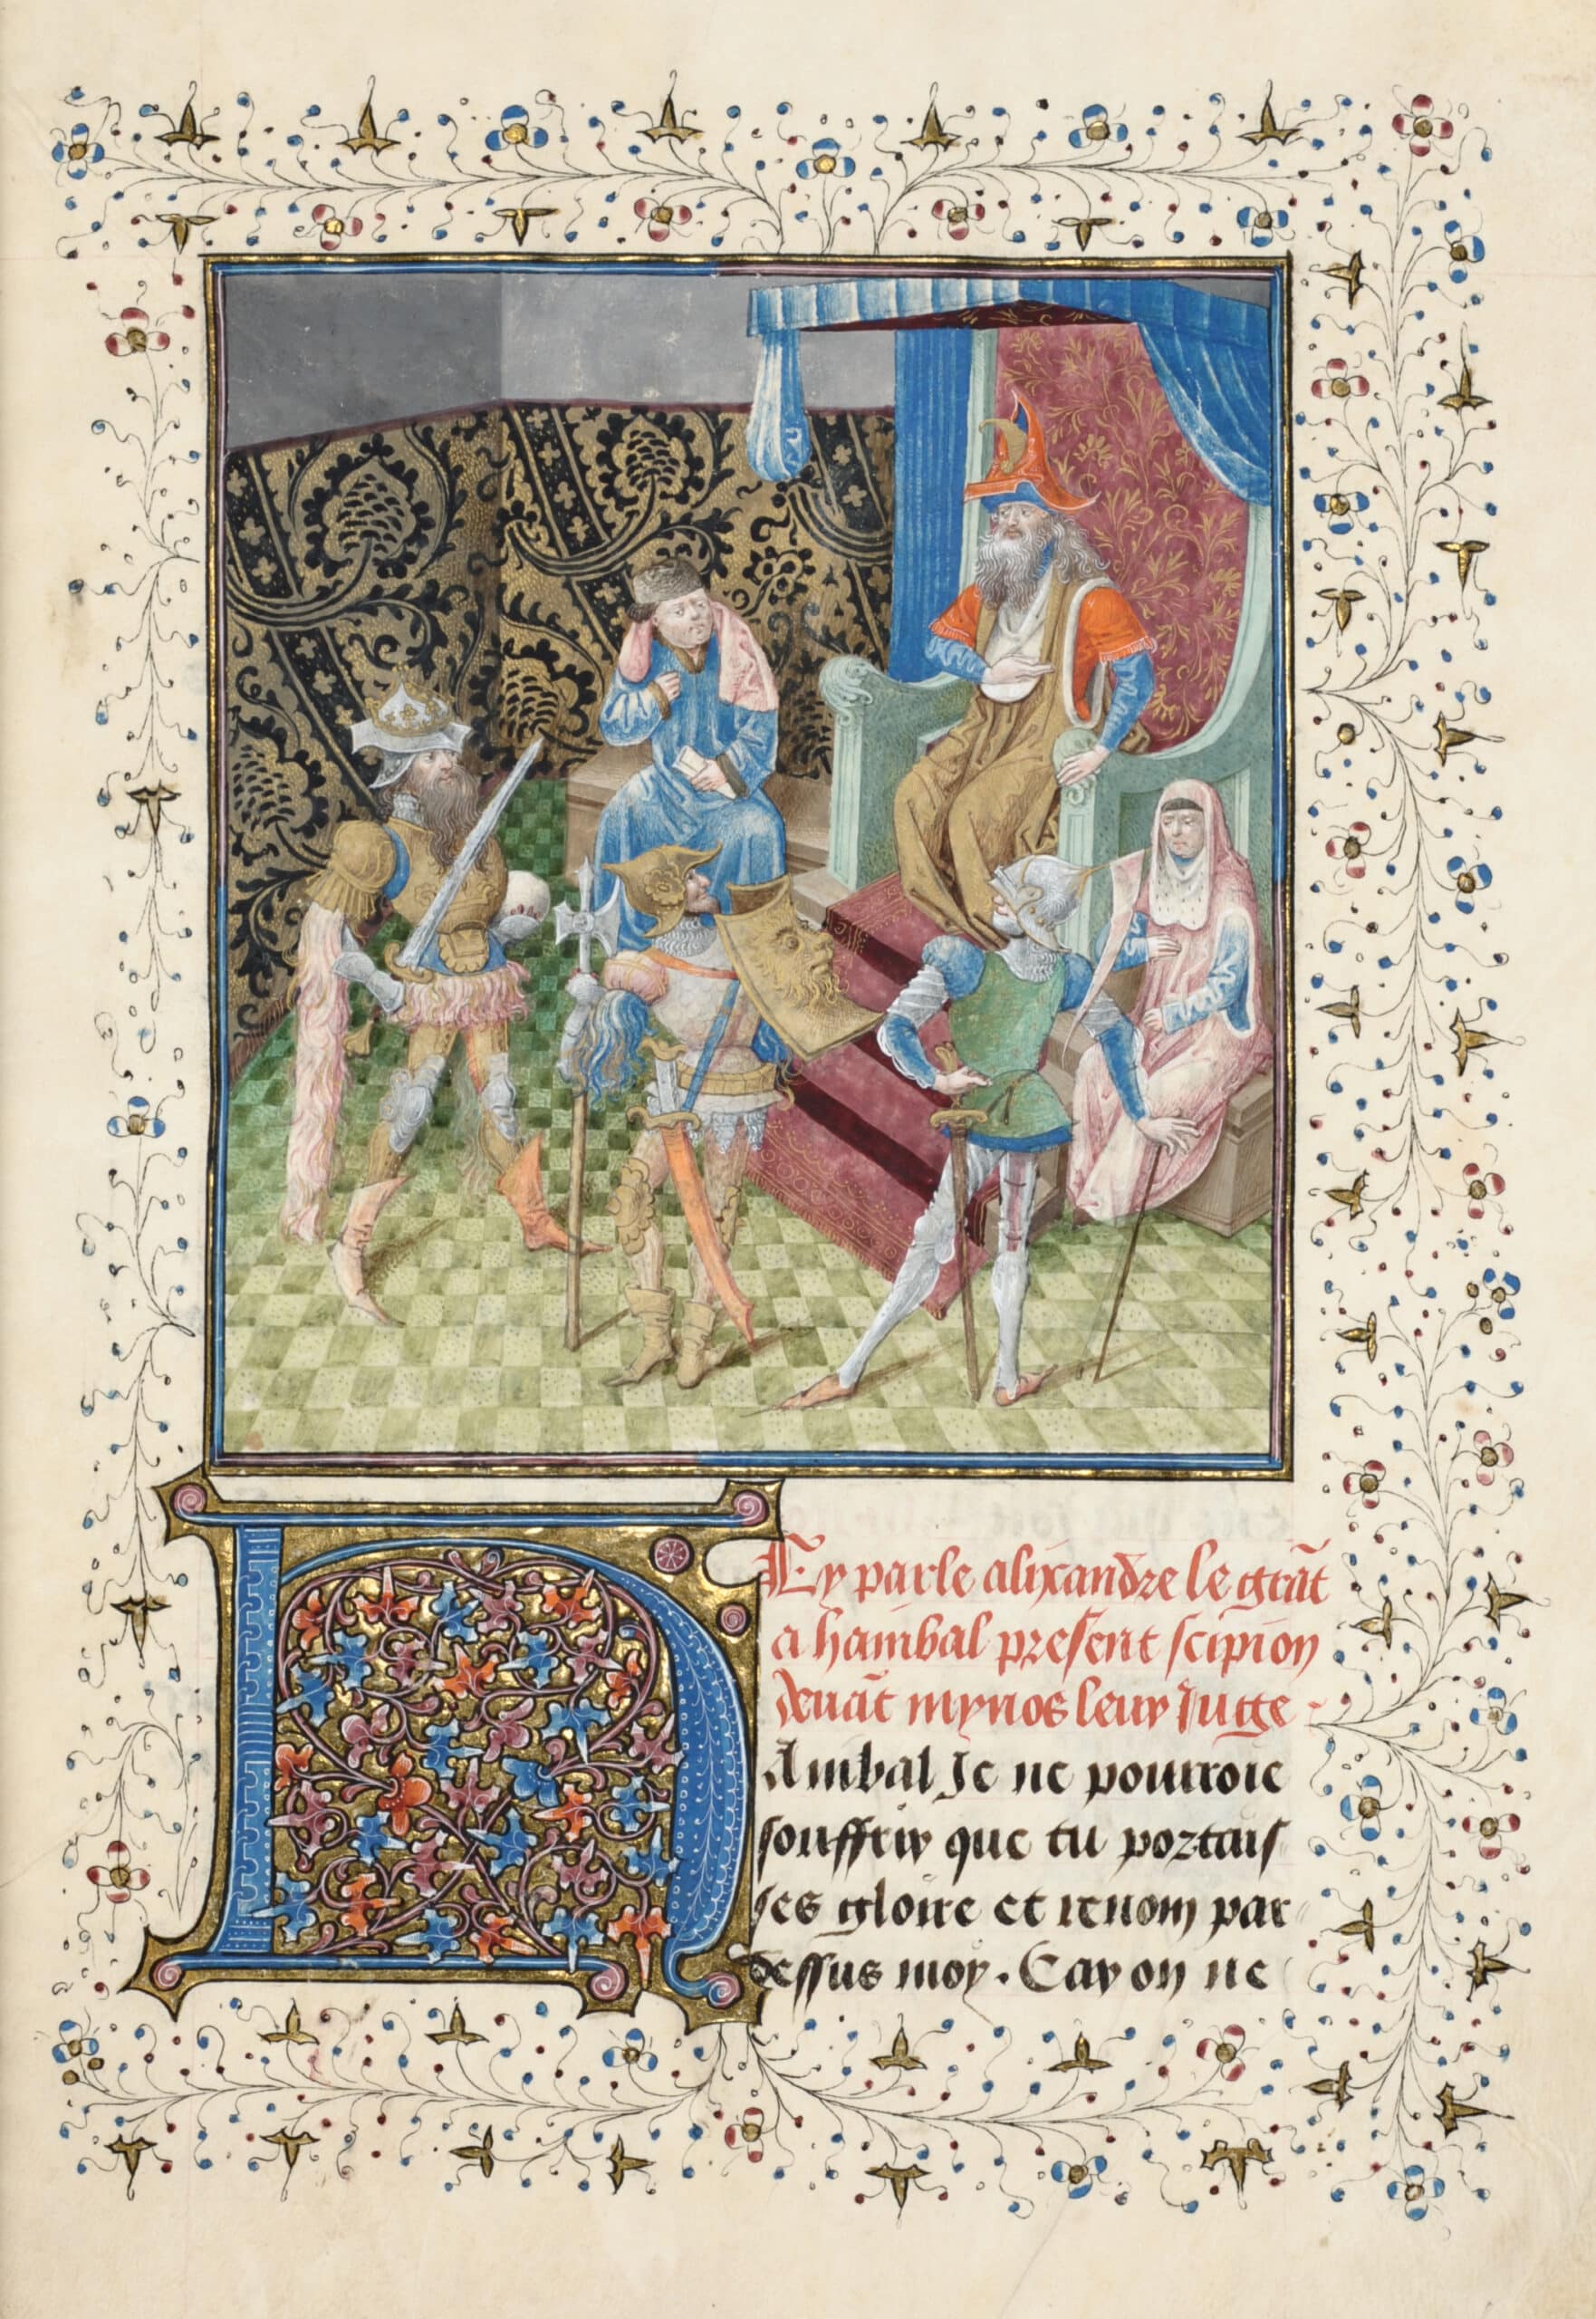 Cy parle alixandre le grāt
a hanibal present scipion
deuāt mynos leur Juge
Hanibal Je ne pourroie
souffrir que tu portaisses
gloire et renom par
dessus moy. Car on ne